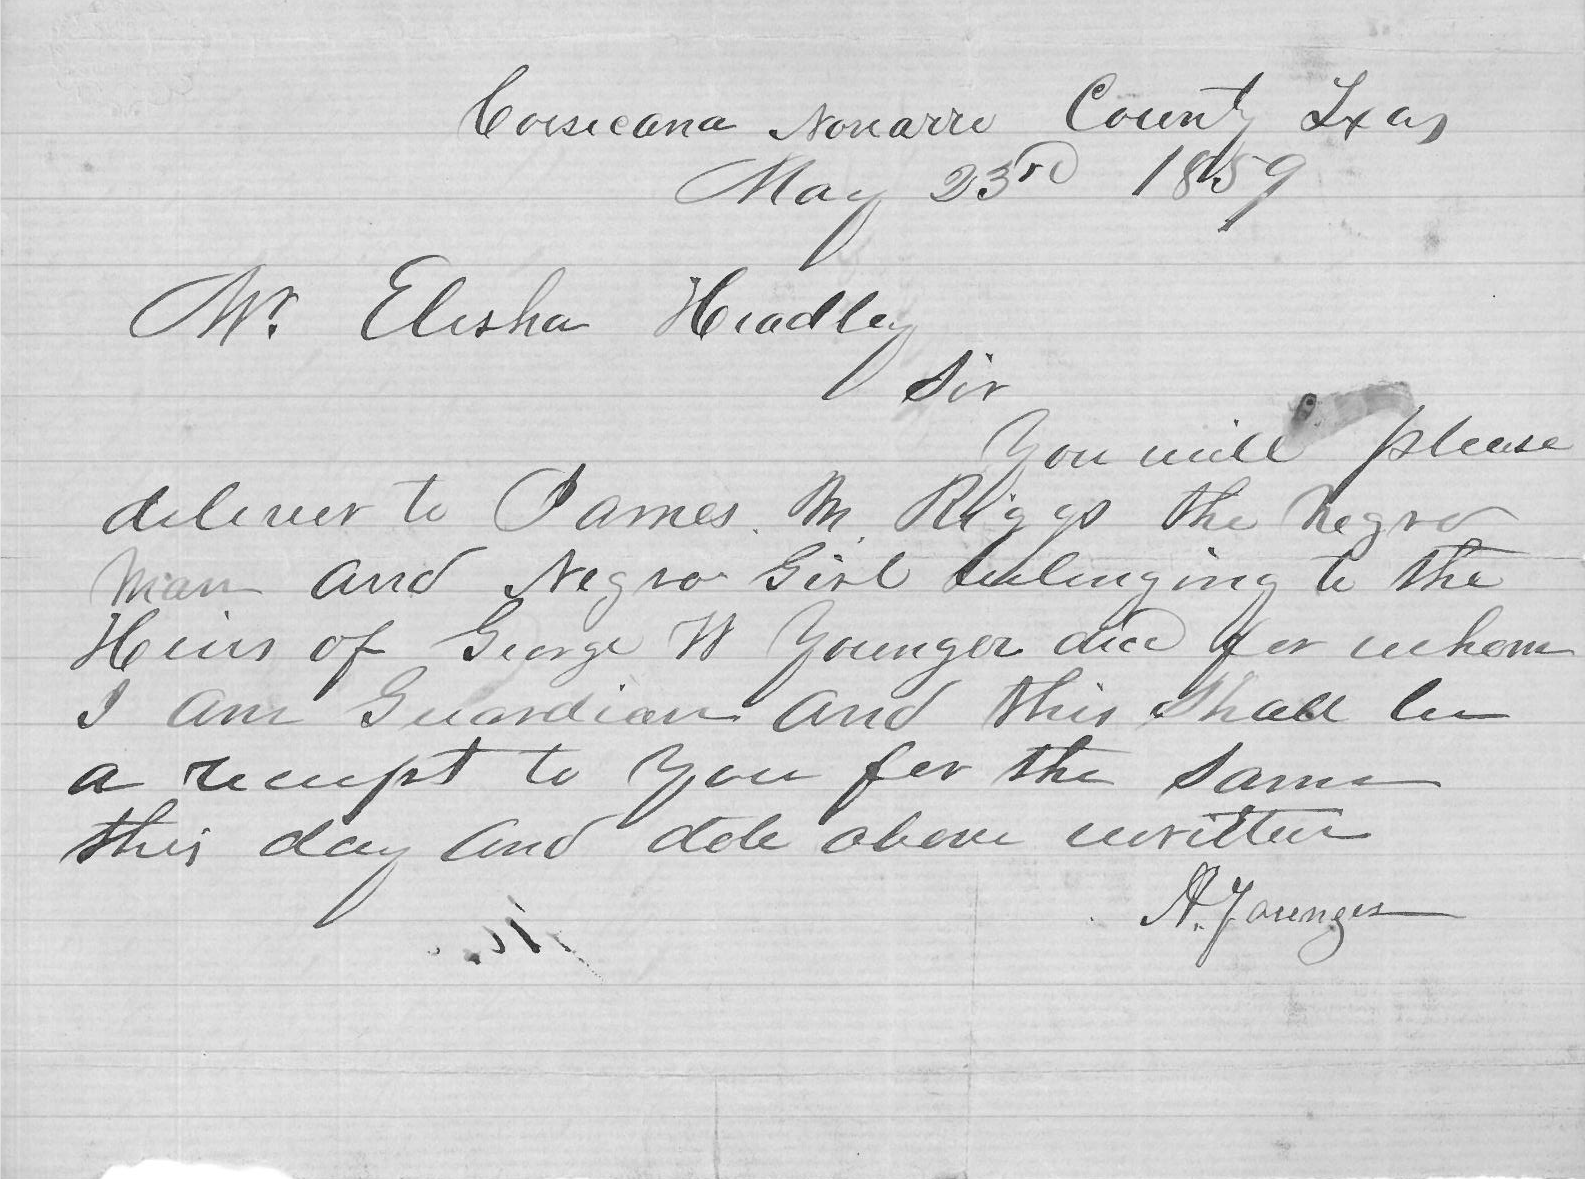 Corsicana Navarro County Txas
May 23rd 1859
Mr. Elisha Headley
Sir
You will please
deliver to James M. Riggs the Negro
Man and Negro Girl belonging to the
Heirs of George W Younger decd for whom
I am Guardian and this Shall be
a receipt to You for the Same
this day and date above written
A. Younger